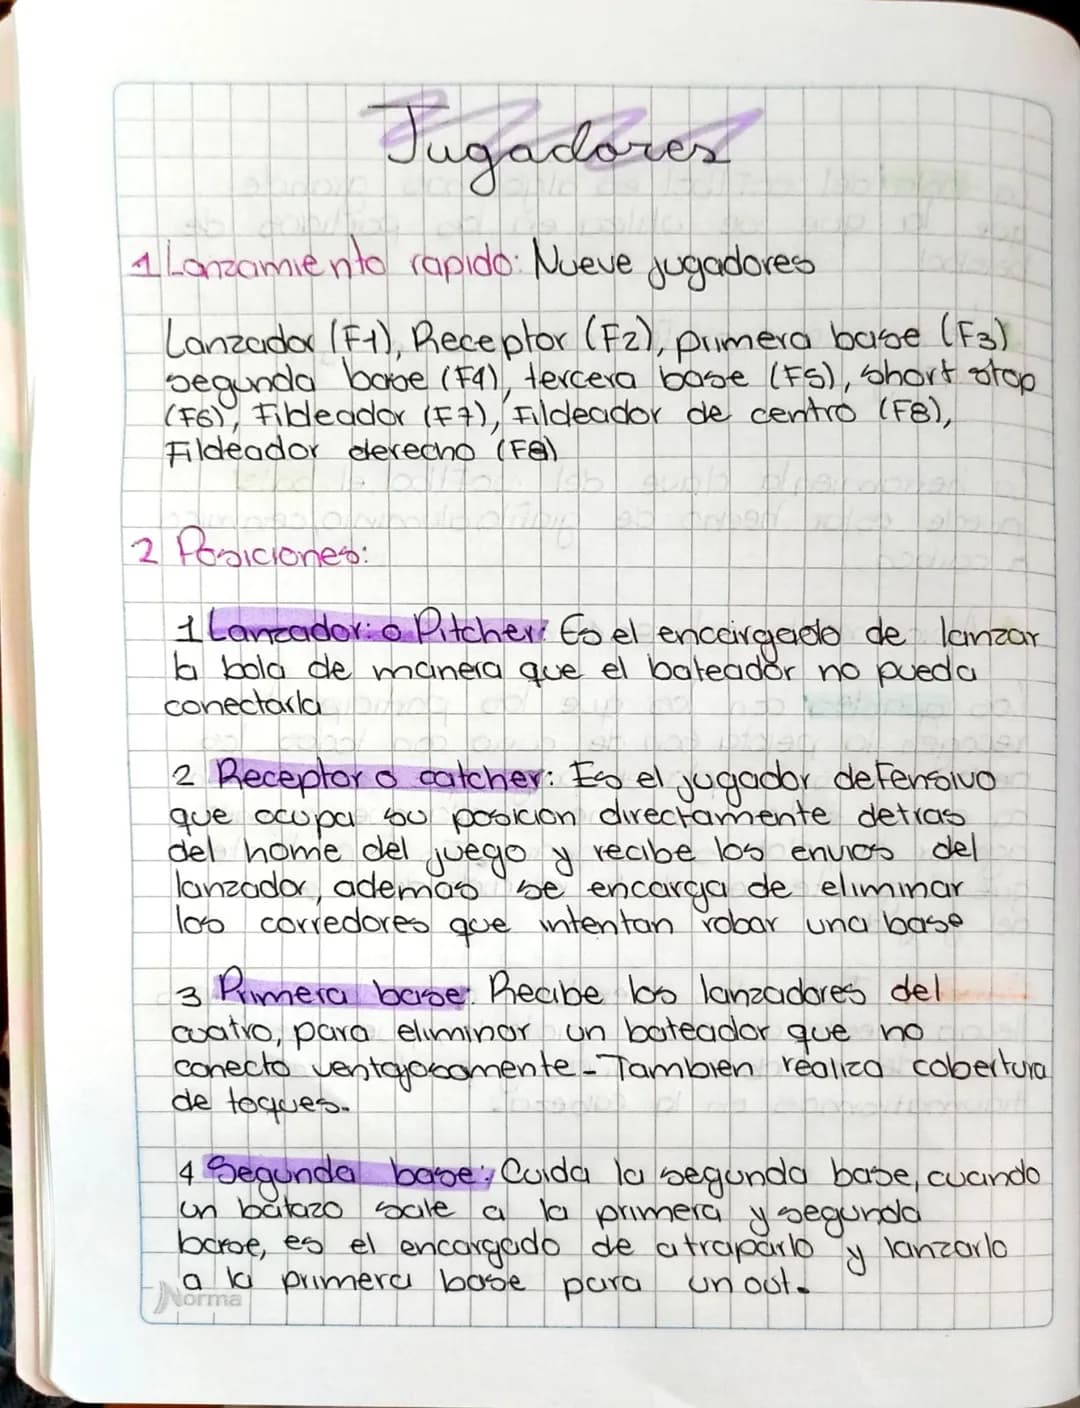 Jugadores
1 Lanzamiento rapido: Nueve jugadores
Lanzador (F1), Receptor (F2), primera base (F3)
segunda base (F4), tercera base (F5), short stop
(F6), Fibleador (F7), Fildeador de centro (F8),
Fildeador derecho (F9)
2 Posiciones:
1 Lanzador: o Pitcher: Es el encargado de lanzar
la bola de manera que el bateador no pueda
conectarla
2 Receptor o catcher: Es el jugador defensivo
que ocupa su posicion directamente detras
del home del juego y recibe los envios del
lanzador, ademas se encarga de eliminar
los corredores que intentan robar una base
3 Primera base: Recibe los lanzadores del
cuatro, para eliminar un bateador que no
conecto ventajosamente - Tambien realiza cobertura
de toques.
4 Segunda base: Cuida la segunda base, cuando
un batazo sale a la primera y segunda
base, es el encargado de atraparlo y lanzarlo
a la primera base para un out.
Norma